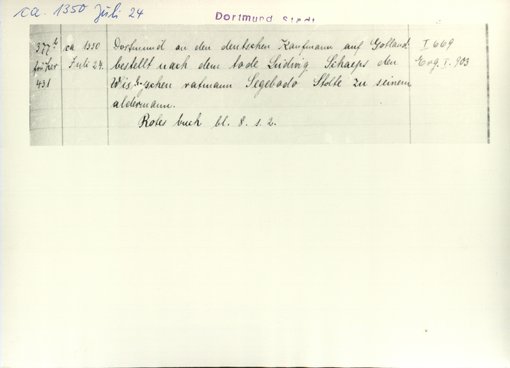 ca. 1350 Juli 24
Dortmund Stadt
377 b ca 1350 Dortmund an den deutschen Kaufmann auf Gotland I 669
früher Juli 24. bestellt nach dem tode Ludwig Schaeps den Erg. I. 903
431 Wisbyschen ratmann Segebodo Stolte zu seinem
aldermann.
Rotes buch bl. 8. s. 2.